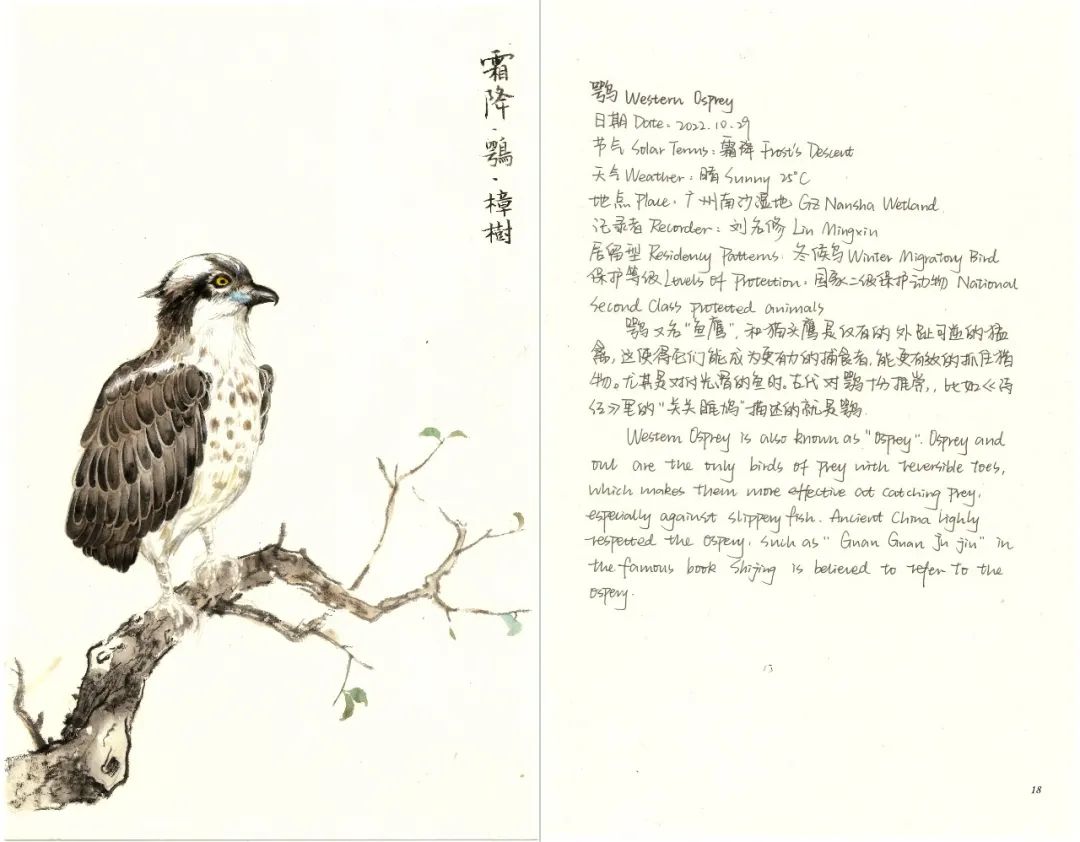 霜降·鶚·樟樹
鹗 Western Osprey
日期 Date: 2022.10.29
节气 Solar Terms: 霜降 Frost's Descent
天气 Weather: 晴 Sunny 25°C
地点 Place: 广州南沙湿地 GZ Nansha Wetland
记录者 Recorder: 刘名修 Lin Mingxin
居留型 Residency Patterns: 冬候鸟 Winter Migratory Bird
保护等级 Levels of Protection: 国家二级保护动物 National
Second Class protected animals
鹗又名“鱼鹰”,和猫头鹰是仅有的外趾可逆的猛
禽,这使得它们能成为更有力的捕食者,能更有效的抓住猎
物。尤其是对付光滑的鱼时。古代对鹗十分推崇,,比如《诗
经》里的“关关雎鸠”描述的就是鹗.
Western Osprey is also known as "Osprey". Osprey and
owl are the only birds of prey with reversible toes,
which makes them more effective at catching prey,
especially against slippery fish. Ancient China highly
respected the ospery, such as "Guan Guan Ju jiu" in
the famous book Shijing is believed to refer to the
ospery.
13
18